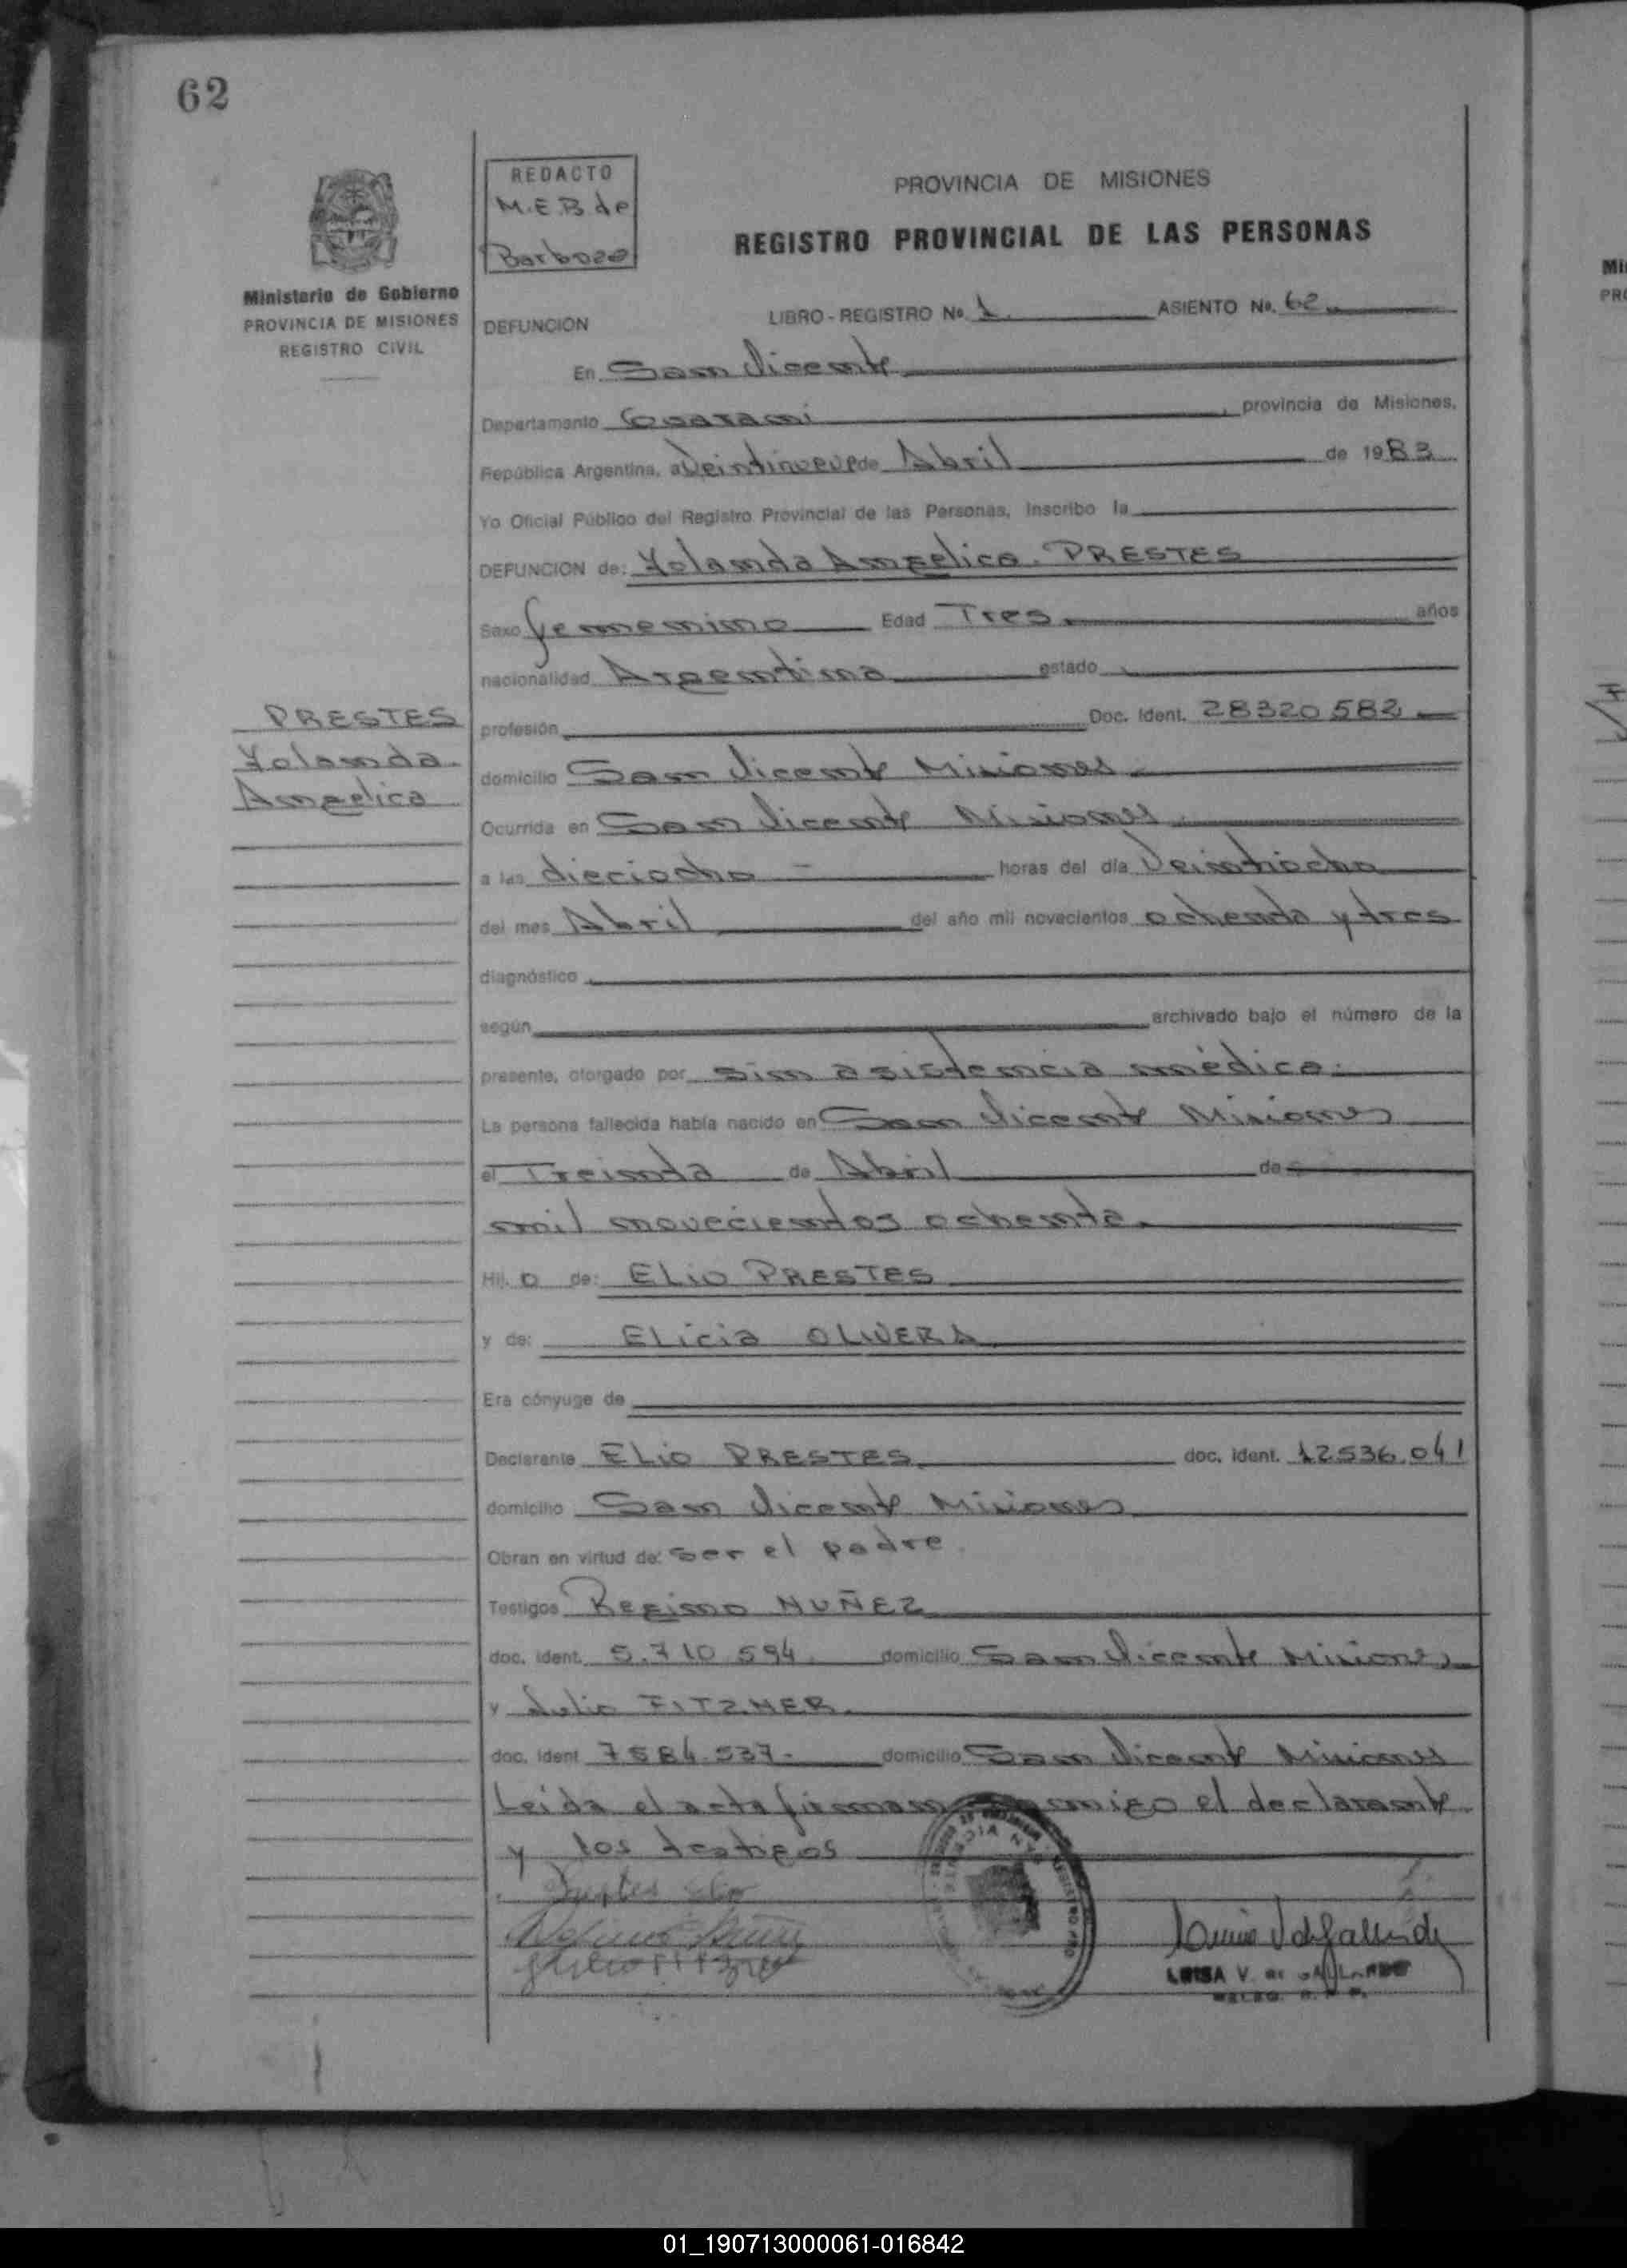 62
REDACTO
M.E.B de
Barboza
PROVINCIA DE MISIONES
REGISTRO PROVINCIAL DE LAS PERSONAS
Ministerio de Gobierno
PROVINCIA DE MISIONES
REGISTRO CIVIL
DEFUNCION
LIBRO - REGISTRO No. 1 ASIENTO No. 62
En San Vicente
Departamento Guarani, provincia de Misiones,
República Argentina, a Veintinueve de Abril de 1983
Yo Oficial Público del Registro Provincial de las Personas, inscribo la
DEFUNCION de: Yolanda Angelica PRESTES
Sexo femenino Edad Tres años
nacionalidad Argentina estado
PRESTES
Yolanda
Angelica
profesión Doc. Ident. 28320582
domicilio San Vicente Misiones
Ocurrida en San Vicente Misiones
a las dieciocho - horas del día Veintiocho
del mes Abril del año mil novecientos ochenta y tres
diagnóstico
según archivado bajo el número de la
presente, otorgado por sin asistencia médica.
La persona fallecida había nacido en San Vicente Misiones
el Treinta de Abril de
mil novecientos ochenta.
Hij o de: ELIO PRESTES
y de: ELicia OLIVERA
Era cónyuge de
Declarante ELIO PRESTES doc. ident. 12536.041
domicilio San Vicente Misiones
Obran en virtud de: ser el padre.
Testigos Regino NUÑEZ
doc. ident. 5.710.594 domicilio San Vicente Misiones
y Julio FITZNER.
doc. ident 7584.537. domicilio San Vicente Misiones
Leida el acta firman conmigo el declarante
y los testigos
Prestes Elio
Julio Fitzner
LUISA V. de GALLARDO
01_190713000061-016842